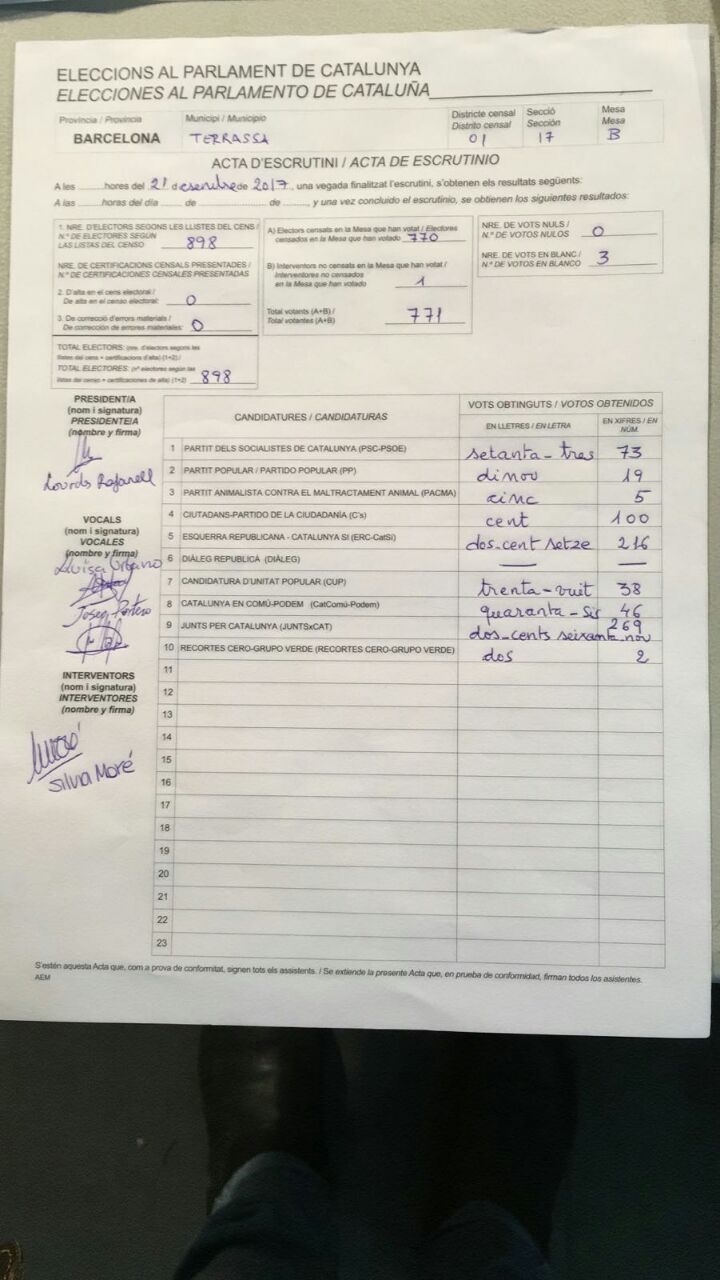 ELECCIONS AL PARLAMENT DE CATALUNYA
ELECCIONES AL PARLAMENTO DE CATALUÑA
Província / Provincia
BARCELONA
Municipi / Municipio
TERRASSA
Districte censal
Distrito censal
01
Secció
Sección
17
Mesa
Mesa
B
ACTA D'ESCRUTINI / ACTA DE ESCRUTINIO
A les ..........hores del 21 desembre de 2017, una vegada finalitzat l'escrutini, s'obtenen els resultats següents:
A las ..........horas del día ..... de ..................... de ........., y una vez concluido el escrutinio, se obtienen los siguientes resultados:
1. NRE. D'ELECTORS SEGONS LES LLISTES DEL CENS /
N.º DE ELECTORES SEGÚN
LAS LISTAS DEL CENSO 898
NRE. DE CERTIFICACIONS CENSALS PRESENTADES /
N.º DE CERTIFICACIONES CENSALES PRESENTADAS
2. D'alta en el cens electoral /
De alta en el censo electoral: 0
3. De correcció d'errors materials /
De corrección de errores materiales: 0
TOTAL ELECTORS: (nre. d'electors segons les
llistes del cens + certificacions d'alta) (1+2) /
TOTAL ELECTORES: (nº electores según las
listas del censo + certificaciones de alta) (1+2) 898
A) Electors censats en la Mesa que han votat / Electores
censados en la Mesa que han votado 770
B) Interventors no censats en la Mesa que han votat /
Interventores no censados
en la Mesa que han votado 1
Total votants (A+B) /
Total votantes (A+B) 771
NRE. DE VOTS NULS /
N.º DE VOTOS NULOS 0
NRE. DE VOTS EN BLANC /
N.º DE VOTOS EN BLANCO 3
PRESIDENT/A
(nom i signatura)
PRESIDENTE/A
(nombre y firma)
Lourds Rafanell
VOCALS
(nom i signatura)
VOCALES
(nombre y firma)
Luisa Urbano
Josep
INTERVENTORS
(nom i signatura)
INTERVENTORES
(nombre y firma)
Silvia Moré
CANDIDATURES / CANDIDATURAS
VOTS OBTINGUTS / VOTOS OBTENIDOS
EN LLETRES / EN LETRA
EN XIFRES / EN NÚM.
1 PARTIT DELS SOCIALISTES DE CATALUNYA (PSC-PSOE) setanta-tres 73
2 PARTIT POPULAR / PARTIDO POPULAR (PP) dinou 19
3 PARTIT ANIMALISTA CONTRA EL MALTRACTAMENT ANIMAL (PACMA) cinc 5
4 CIUTADANS-PARTIDO DE LA CIUDADANÍA (C's) cent 100
5 ESQUERRA REPUBLICANA - CATALUNYA SÍ (ERC-CatSí) dos-cent setze 216
6 DIÀLEG REPUBLICÀ (DIÀLEG) — —
7 CANDIDATURA D'UNITAT POPULAR (CUP) trenta-vuit 38
8 CATALUNYA EN COMÚ-PODEM (CatComú-Podem) quaranta-sis 46
9 JUNTS PER CATALUNYA (JUNTSxCAT) dos-cents seixanta nou 269
10 RECORTES CERO-GRUPO VERDE (RECORTES CERO-GRUPO VERDE) dos 2
11
12
13
14
15
16
17
18
19
20
21
22
23
S'estén aquesta Acta que, com a prova de conformitat, signen tots els assistents. / Se extiende la presente Acta que, en prueba de conformidad, firman todos los asistentes.
AEM